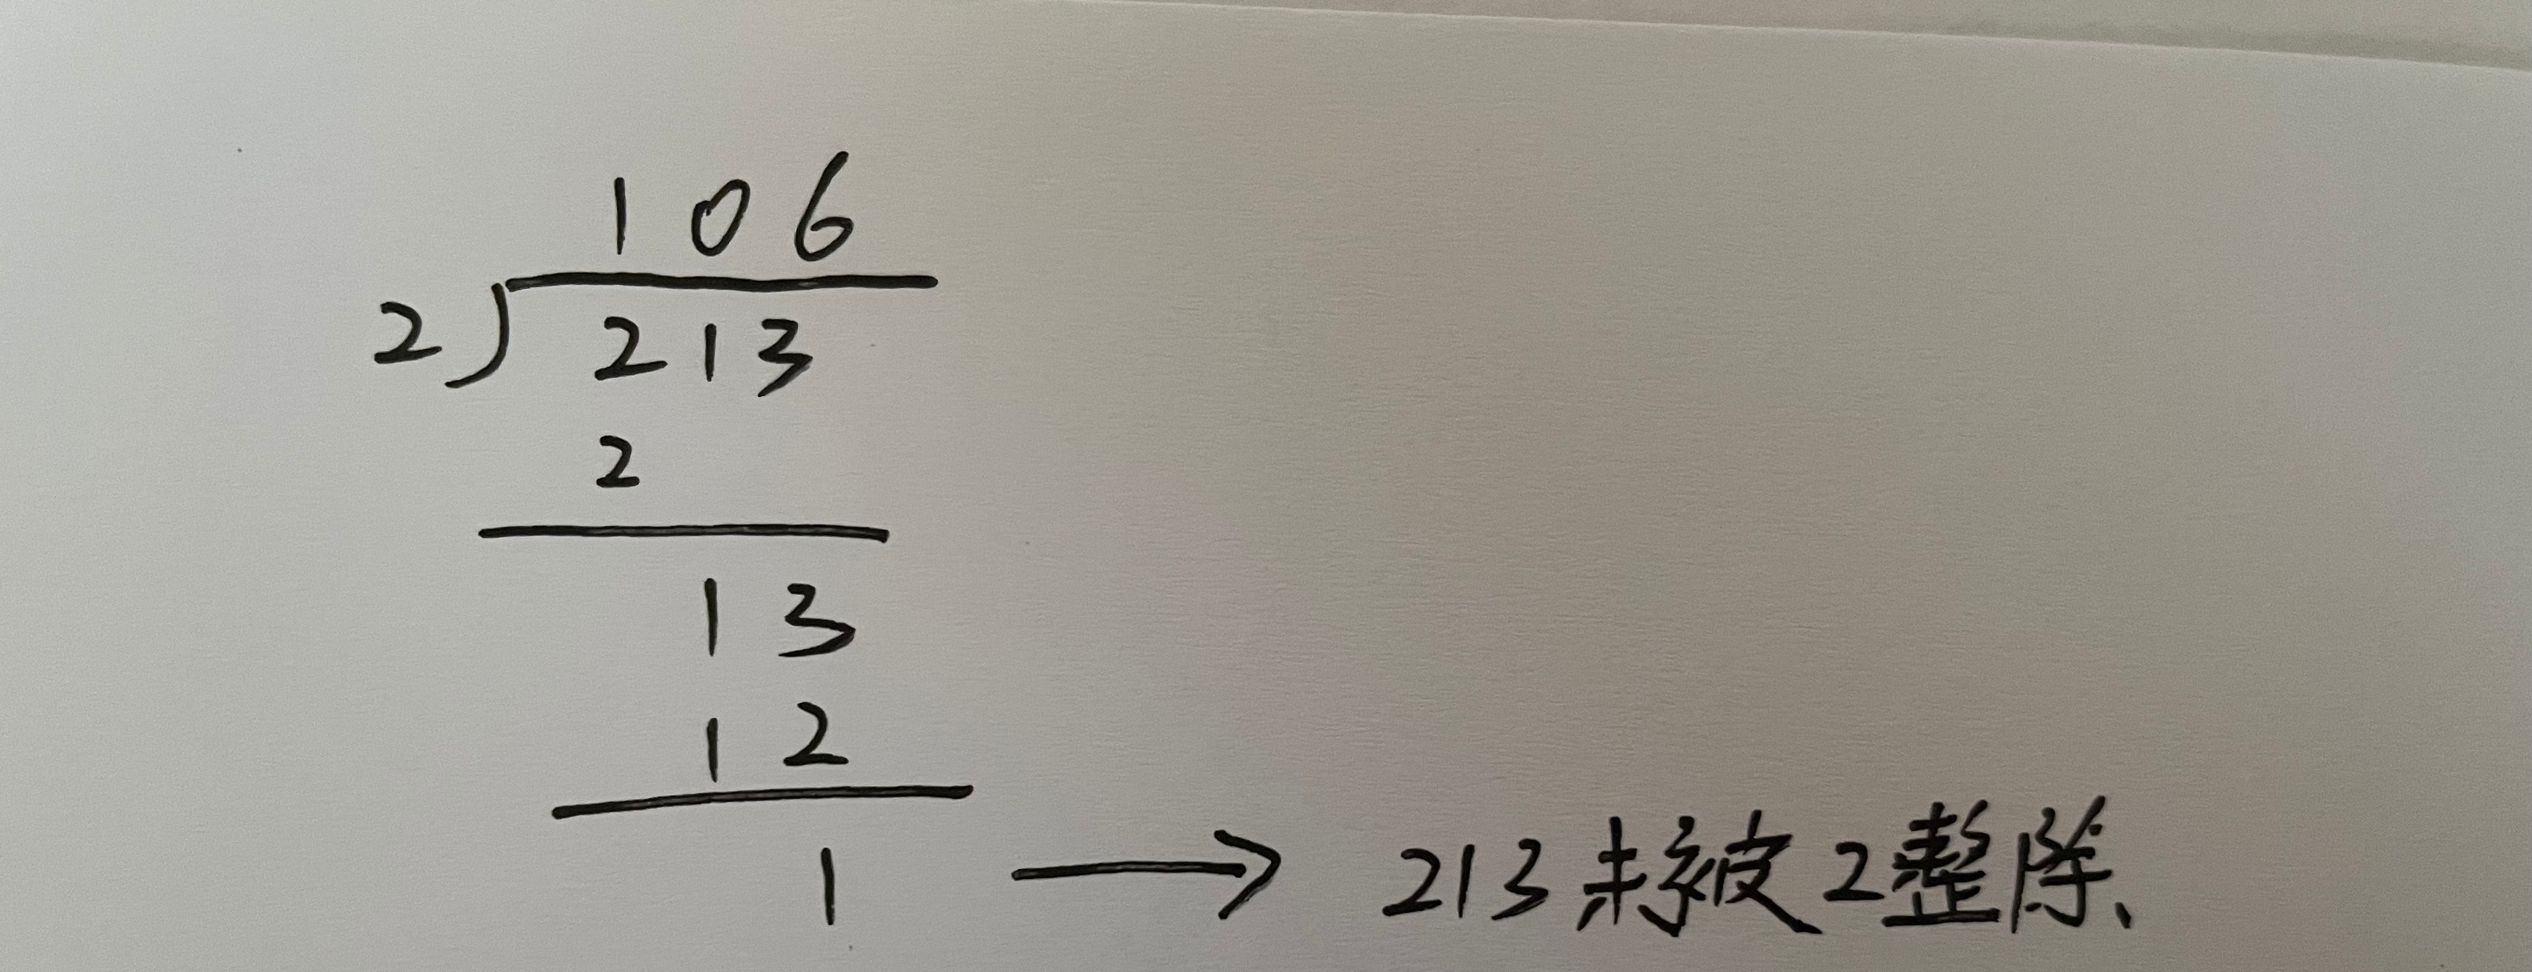 106
2)213
2
13
12
1 → 213未被2整除、